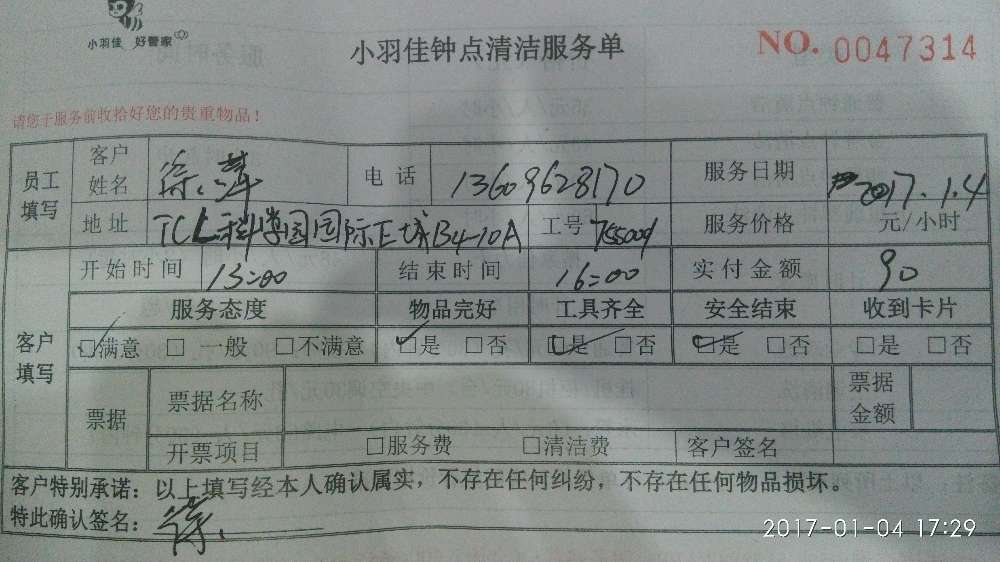 小羽佳 好管家
小羽佳钟点清洁服务单
NO. 0047314
请您于服务前收拾好您的贵重物品！
员工填写 客户姓名 徐萍 电话 13609628170 服务日期 2017.1.4
地址 TCL科学园国际E城B4-10A 工号 服务价格 元/小时
开始时间 13:00 结束时间 16:00 实付金额 90
客户填写 服务态度 物品完好 工具齐全 安全结束 收到卡片
☑满意 □一般 □不满意 ☑是 □否 ☑是 □否 ☑是 □否 □是 □否
票据 票据名称 票据金额
开票项目 □服务费 □清洁费 客户签名
客户特别承诺：以上填写经本人确认属实，不存在任何纠纷，不存在任何物品损坏。
特此确认签名：徐
2017-01-04 17:29